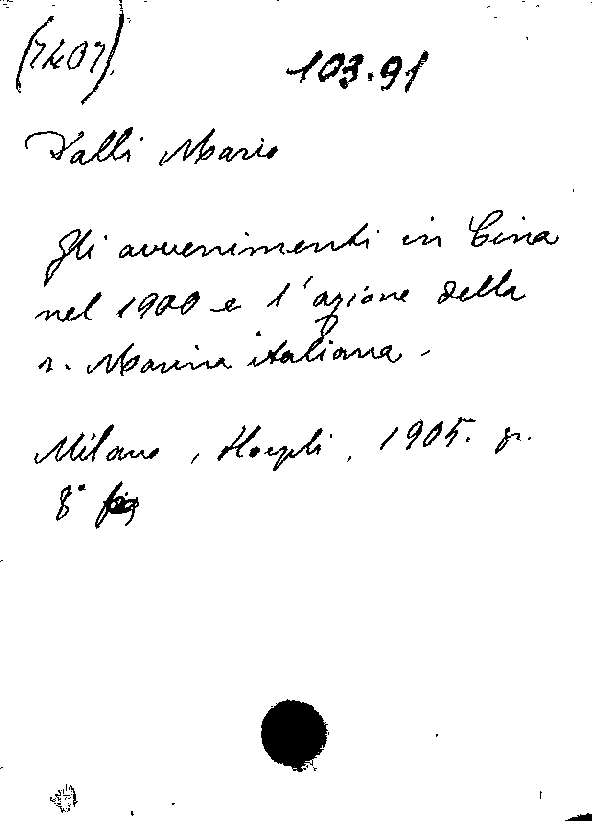 (7407).
103.91
Valli Mario
Gli avvenimenti in Cina
nel 1900 e l'azione della
r. Marina italiana.
Milano, Hoepli, 1905. gr.
8° fig